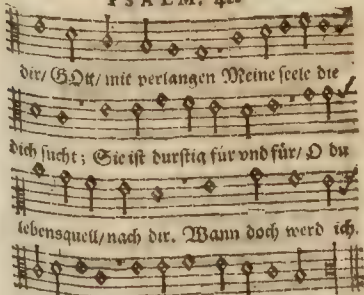 PSALM. 42
dir/ GOtt/ mit verlangen Meine seele die
dich sucht; Sie ist durstig für vnd für/ O du
lebensquell/ nach dir. Wann doch werd ich.